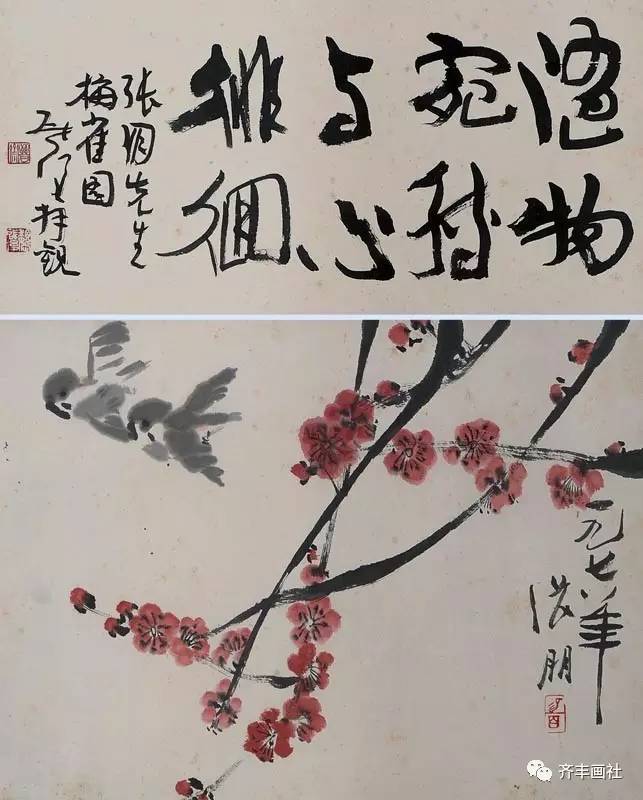 随物
宛转
与心
徘徊
张朋先生
梅雀图
拜观
一九七八年
张朋
齐丰画社